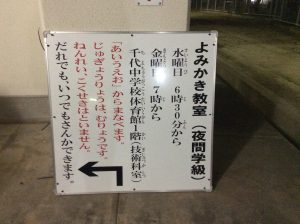 よみかき教室(夜間学級)
水曜日 6時30分から
金曜日 7時から
千代中学校体育館1階(技術科室)
「あいうえお」からまなべます。
じゅぎょうりょうは、むりょうです。
ねんれい、こくせきはといません。
だれでもいつでもさんかできます。